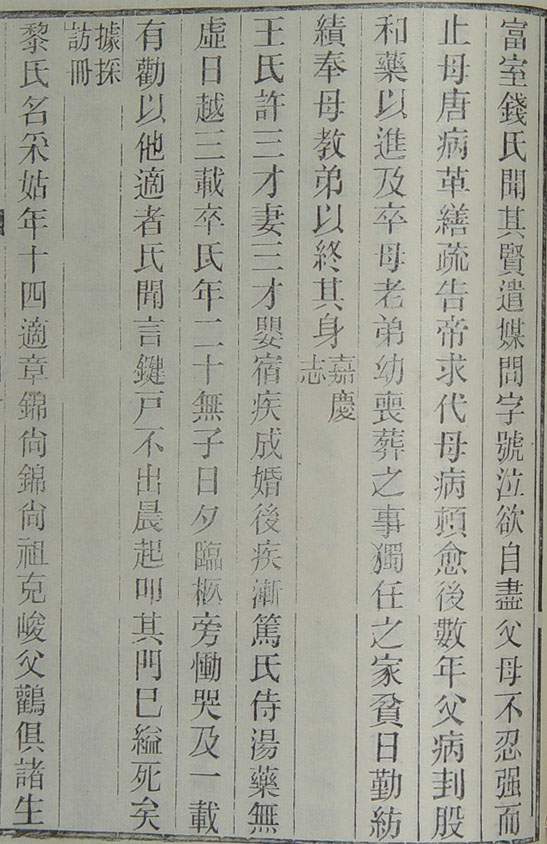 富室錢氏聞其賢遣媒問字號泣欲自盡父母不忍强而
止母唐病革繕疏告帝求代母病頓愈後數年父病刲股
和藥以進及卒母老弟幼喪葬之事獨任之家貧日勤紡
績奉母教弟以終其身嘉慶志
王氏許三才妻三才嬰宿疾成婚後疾漸篤氏侍湯藥無
虛日越三載卒氏年二十無子日夕臨柩旁慟哭及一載
有勸以他適者氏聞言鍵戸不出晨起叩其門已縊死矣
據採訪冊
黎氏名采姑年十四適章錦尙錦尙祖克峻父鸛俱諸生